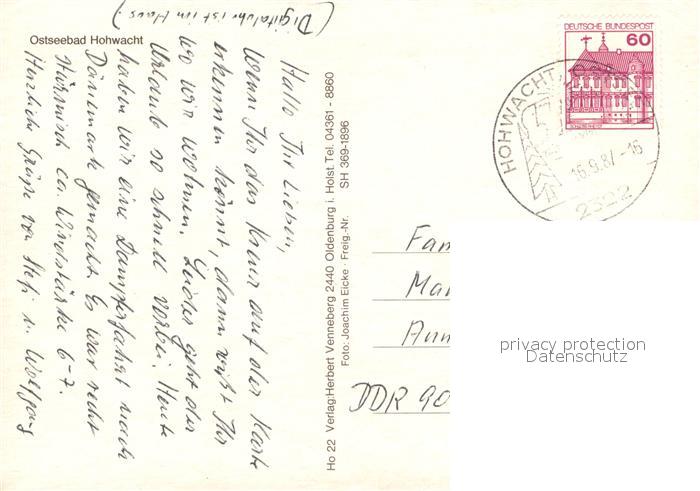 (Digitaluhr ist im Haus.)
Ostseebad Hohwacht
Hallo Ihr Lieben,
Wenn Ihr das Kreuz auf der Karte
erkennen könnt, dann wißt Ihr
wo wir wohnen. Leider geht der
Urlaub so schnell vorbei. Heute
haben wir eine Dampferfahrt nach
Dänemark gemacht. Es war recht
stürmisch ca. Windstärke 6-7.
Herzliche Grüße von Stefi u. Wolfgang
Ho 22 Verlag:Herbert Venneberg 2440 Oldenburg i. Holst. Tel. 04361 - 8860
Foto: Joachim Eicke · Freig.-Nr. SH 369-1896
DEUTSCHE BUNDESPOST
60
HOHWACHT
16.9.87-16
2322
Fam
DDR 90
privacy protection
Datenschutz